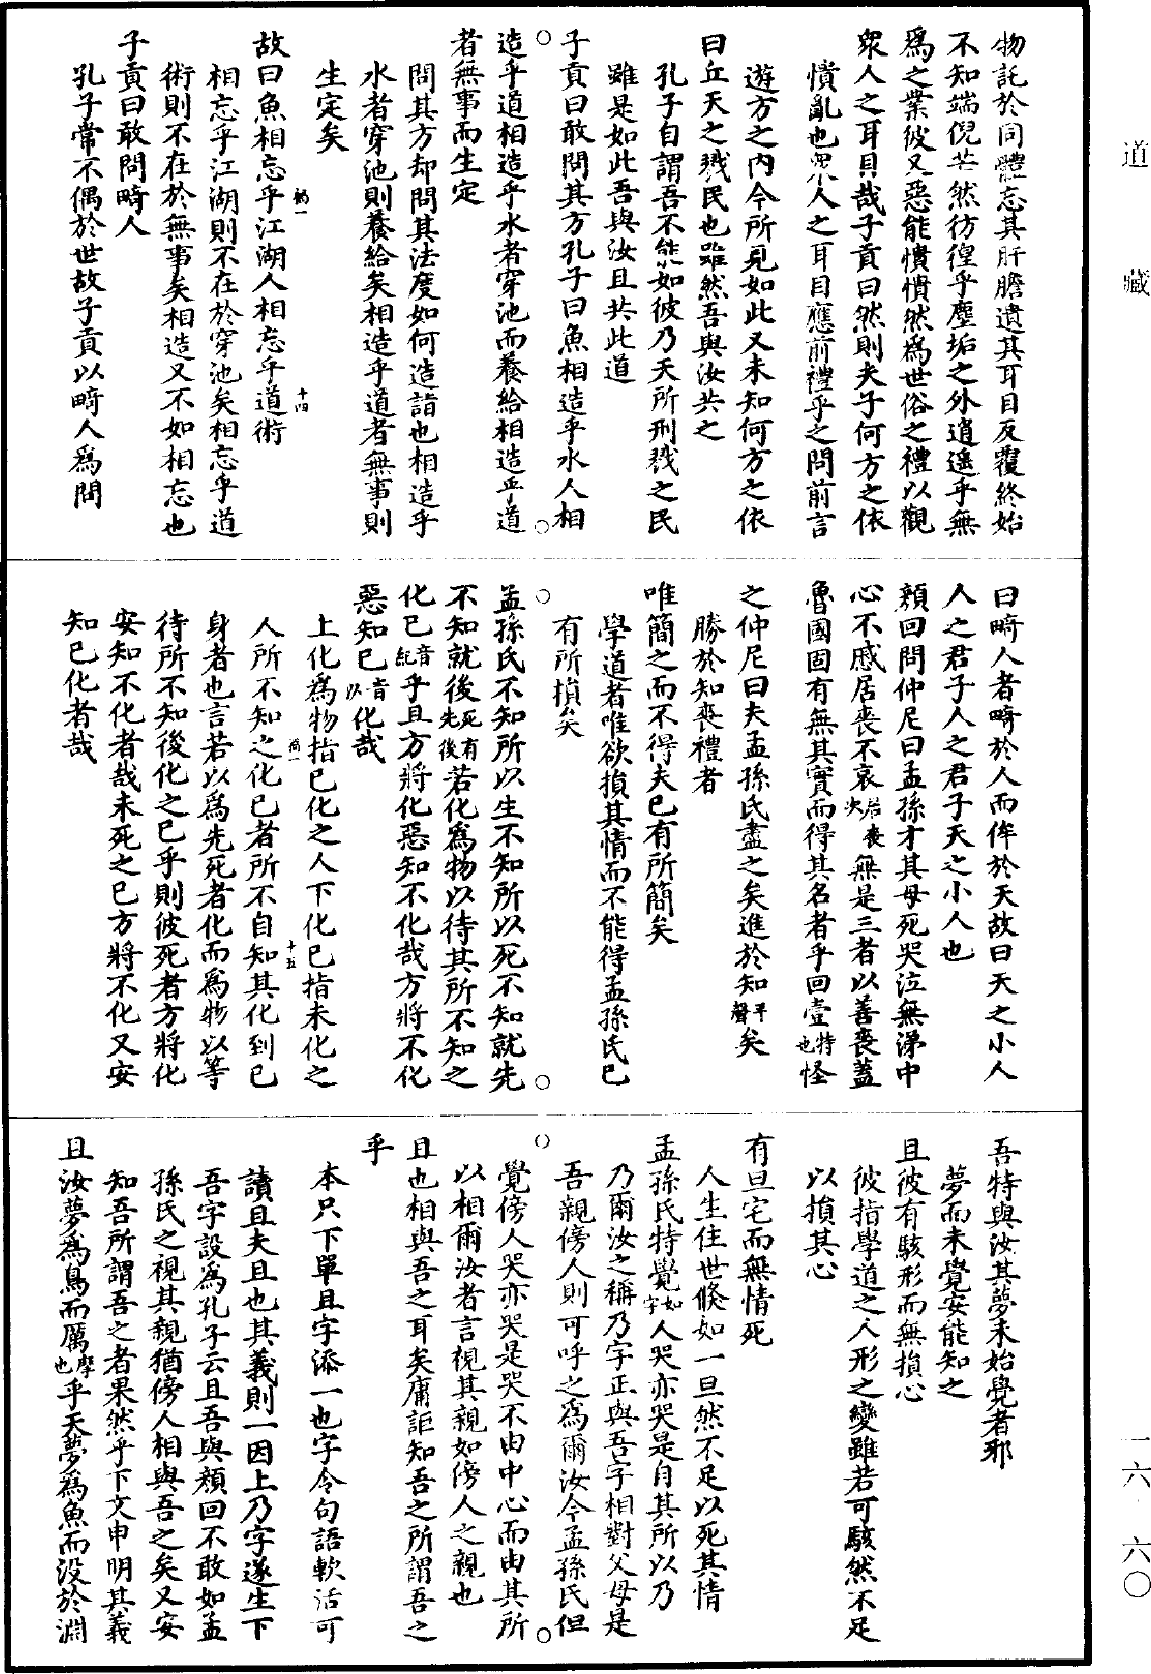 物託於同體忘其肝膽遺其耳目反覆終始
不知端倪芒然彷徨乎塵垢之外逍遙乎無
爲之業彼又惡能憒憒然爲世俗之禮以觀
衆人之耳目哉子貢曰然則夫子何方之依
憒亂也衆人之耳目應前禮乎之問前言
遊方之內今所見如此又未知何方之依
曰丘天之戮民也雖然吾與汝共之
孔子自謂吾不能如彼乃天所刑戮之民
雖是如此吾與汝且共此道
子貢曰敢問其方孔子曰魚相造乎水人相
造乎道相造乎水者穿池而養給相造乎道
者無事而生定
問其方却問其法度如何造詣也相造乎
水者穿池則養給矣相造乎道者無事則
生定矣
故曰魚相忘乎江湖人相忘乎道術
相忘乎江湖則不在於穿池矣相忘乎道
術則不在於無事矣相造又不如相忘也
子貢曰敢問畸人
孔子常不偶於世故子貢以畸人爲問
曰畸人者畸於人而侔於天故曰天之小人
人之君子人之君子天之小人也
顏回問仲尼曰孟孫才其母死哭泣無涕中
心不慼居喪不哀居喪無是三者以善喪蓋
魯國固有無其實而得其名者乎回壹特也怪
之仲尼曰夫孟孫氏盡之矣進於知平聲矣
勝於知喪禮者
唯簡之而不得夫已有所簡矣
學道者唯欲損其情而不能得孟孫氏已
有所損矣
孟孫氏不知所以生不知所以死不知就先
不知就後死有先後若化爲物以待其所不知之
化已音紀乎且方將化惡知不化哉方將不化
惡知已音以化哉
上化爲物指已化之人下化已指未化之
人所不知之化已者所不自知其化到已
身者也言若以爲先死者化而爲物以等
待所不知後化之已乎則彼死者方將化
安知不化者哉未死之已方將不化又安
知已化者哉
吾特與汝其夢未始覺者邪
夢而未覺安能知之
且彼有駭形而無損心
彼指學道之人形之變雖若可駭然不足
以損其心
有旦宅而無情死
人生住世倏如一旦然不足以死其情
孟孫氏特覺如字人哭亦哭是自其所以乃
乃爾汝之稱乃字正與吾字相對父母是
吾親傍人則可呼之爲爾汝今孟孫氏但
覺傍人哭亦哭是哭不由中心而由其所
以相爾汝者言視其親如傍人之親也
且也相與吾之耳矣庸詎知吾之所謂吾之
乎
本只下單且字添一也字令句語軟活可
讀且夫且也其義則一因上乃字遂生下
吾字設爲孔子云且吾與顏回不敢如孟
孫氏之視其親猶傍人相與吾之矣又安
知吾所謂吾之者果然乎下文申明其義
且汝夢爲鳥而厲摩也乎天夢爲魚而沒於淵
道藏
一六·六〇
十四
十五